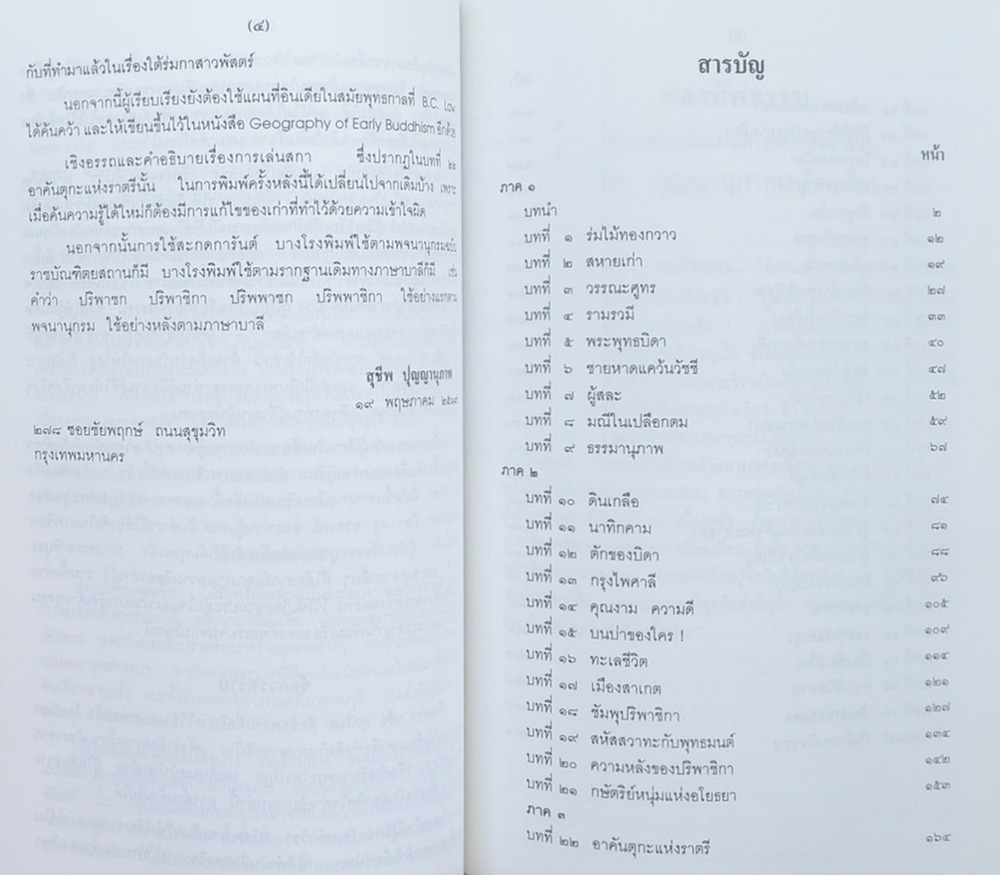 (๔)
กับที่ทำมาแล้วในเรื่องใต้ร่มกาสาวพัสตร์
นอกจากนี้ผู้เรียบเรียงยังต้องใช้แผนที่อินเดียในสมัยพุทธกาลที่ B.C. Low
ได้ค้นคว้า และให้เขียนขึ้นไว้ในหนังสือ Geography of Early Buddhism อีกด้วย
เชิงอรรถและคำอธิบายเรื่องการเล่นสกา ซึ่งปรากฏในบทที่ ๒๒
อาคันตุกะแห่งราตรีนั้น ในการพิมพ์ครั้งหลังนี้ได้เปลี่ยนไปจากเดิมบ้าง เพราะ
เมื่อค้นความรู้ได้ใหม่ก็ต้องมีการแก้ไขของเก่าที่ทำไว้ด้วยความเข้าใจผิด
นอกจากนั้นการใช้สะกดการันต์ บางโรงพิมพ์ใช้ตามพจนานุกรมฉบับ
ราชบัณฑิตยสถานก็มี บางโรงพิมพ์ใช้ตามรากฐานเดิมทางภาษาบาลีก็มี เช่น
คำว่า ปริพาชก ปริพาชิกา ปริพพาชก ปริพพาชิกา ใช้อย่างแรกตาม
พจนานุกรม ใช้อย่างหลังตามภาษาบาลี
สุชีพ ปุญญานุภาพ
๑๙ พฤษภาคม
๒๗๘ ซอยชัยพฤกษ์ ถนนสุขุมวิท
กรุงเทพมหานคร
สารบัญ
หน้า
ภาค ๑
บทนำ ๒
บทที่ ๑ ร่มไม้ทองกวาว ๑๒
บทที่ ๒ สหายเก่า ๑๙
บทที่ ๓ วรรณะศูทร ๒๗
บทที่ ๔ รามรวมี ๓๓
บทที่ ๕ พระพุทธบิดา ๔๐
บทที่ ๖ ชายหาดแคว้นวัชชี ๔๗
บทที่ ๗ ผู้สละ ๕๒
บทที่ ๘ มณีในเปลือกตม ๕๙
บทที่ ๙ ธรรมานุภาพ ๖๗
ภาค ๒
บทที่ ๑๐ ดินเกลือ ๗๔
บทที่ ๑๑ นาทิกคาม ๘๑
บทที่ ๑๒ ตักของบิดา ๘๘
บทที่ ๑๓ กรุงไพศาลี ๙๖
บทที่ ๑๔ คุณงาม ความดี ๑๐๕
บทที่ ๑๕ บนบ่าของใคร ! ๑๐๙
บทที่ ๑๖ ทะเลชีวิต ๑๑๔
บทที่ ๑๗ เมืองสาเกต ๑๒๑
บทที่ ๑๘ ชัมพุปริพาชิกา ๑๒๗
บทที่ ๑๙ สหัสสวาทะกับพุทธมนต์ ๑๓๔
บทที่ ๒๐ ความหลังของปริพาชิกา ๑๔๒
บทที่ ๒๑ กษัตริย์หนุ่มแห่งอโยธยา ๑๕๓
ภาค ๓
บทที่ ๒๒ อาคันตุกะแห่งราตรี ๑๖๔